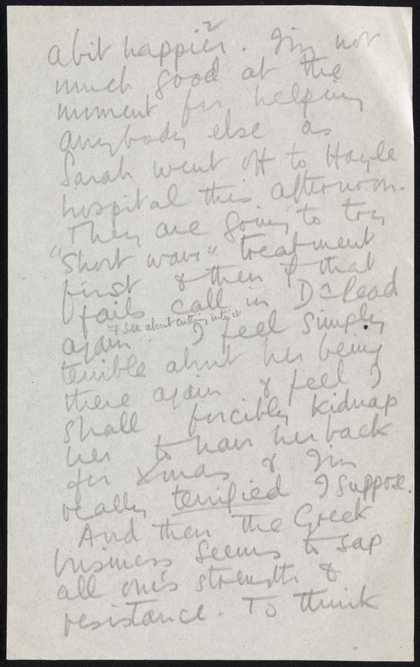 a bit happier. I'm not
much good at the
moment for helping
anybody else as
Sarah went off to Hayle
hospital this afternoon.
They are going to try
"short wave" treatment
first & then if that
fails call in Dr Lead
& see about cutting into it
again. I feel simply
terrible about her being
there again & feel I
shall forcibly kidnap
her to have her back
for Xmas & I'm
really terrified I suppose.
And then the Greek
business seems to sap
all one's strength &
resistance. To think